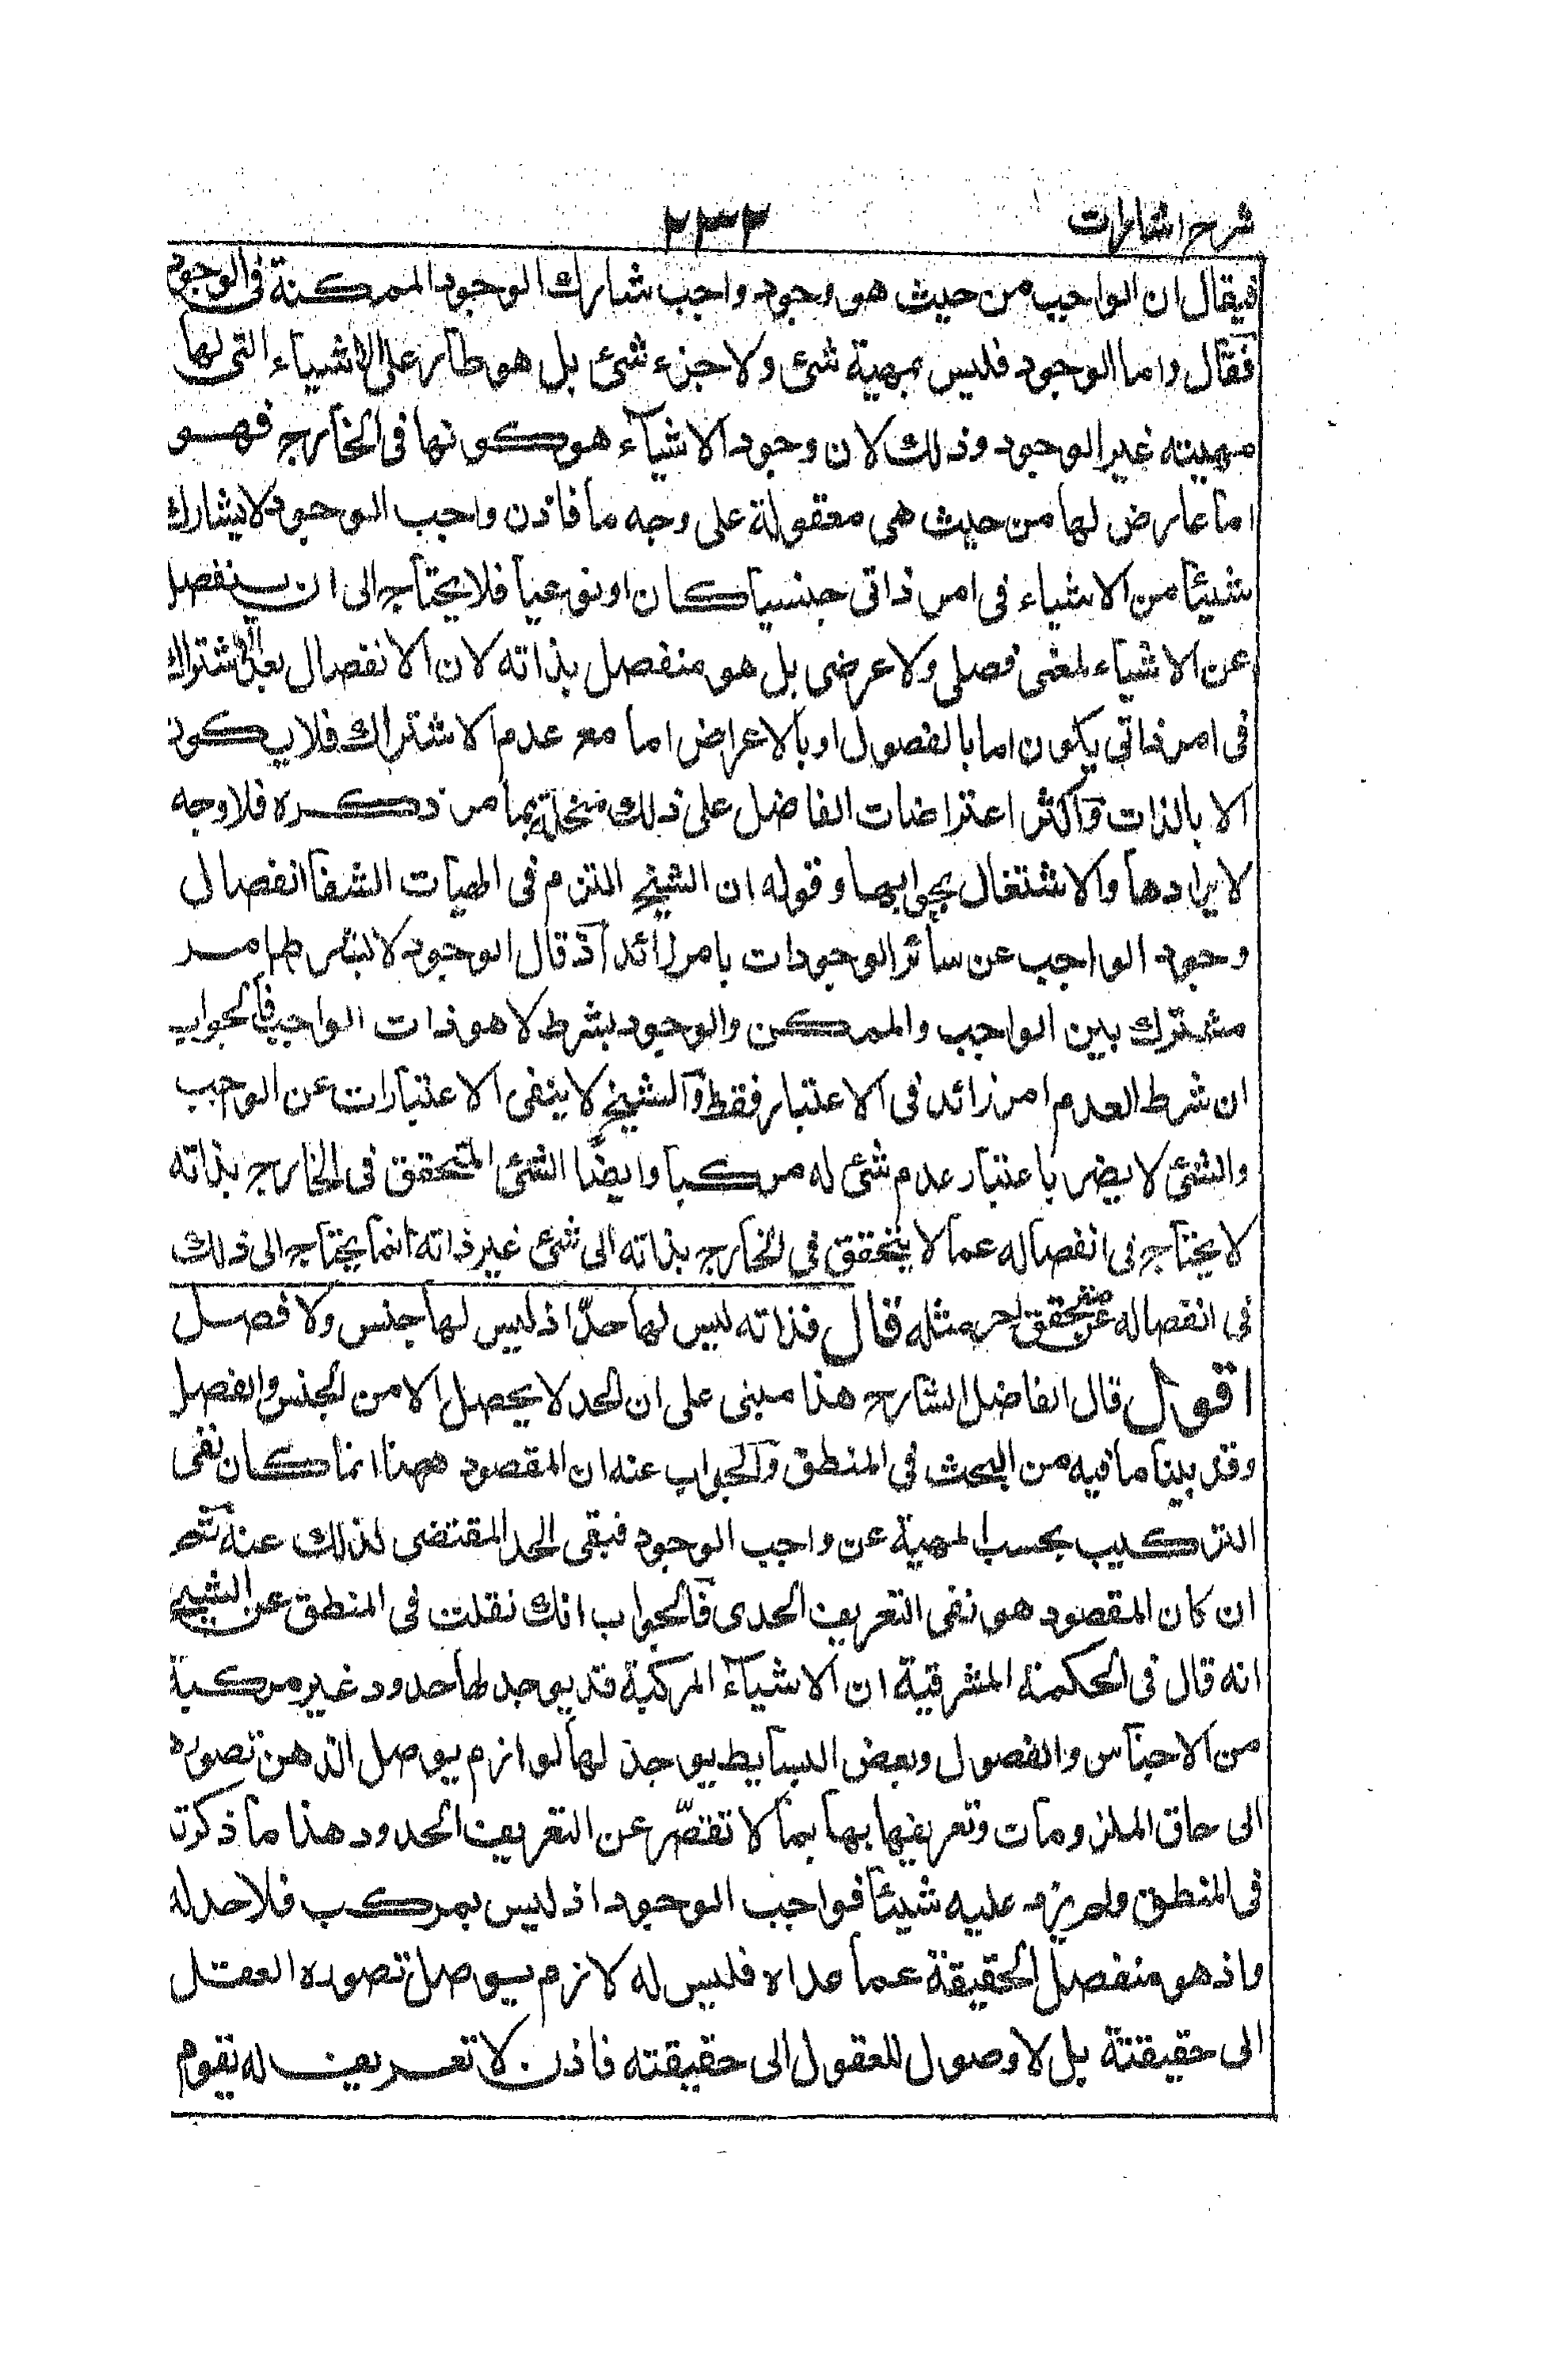 شرح اشارات ٢٣٢
فيقال ان الواجب من حيث هو وجود واجب شارك الوجود الممكنة فى الوجود
فقال واما الوجود فليس بمهية شئ ولا جزء شئ بل هو طار على الاشياء التى لها
مهيته غير الوجود وذلك لان وجود الاشياء هو كونها فى الخارج فهو
اما عارض لها من حيث هى معقولة على وجه ما فاذن واجب الوجود لا يشارك
شيئا من الاشياء فى امر ذاتى جنسيا كان او نوعيا فلا يحتاج الى ان ينفصل
عن الاشياء لمعنى فصلى ولا عرضى بل هو منفصل بذاته لان الانفصال بعد الاشتراك
فى امر ذاتى يكون اما بالفصول او بالاعراض اما مع عدم الاشتراك فلا يكون
الا بالذات واكثر اعتراضات الفاضل على ذلك منحلة بما مر ذكره فلا وجه
لايرادها والاشتغال بجوابها وقوله ان الشيخ التزم فى الهيات الشفا انفصال
وجود الواجب عن سائر الوجودات بامر زائد اذ قال الوجود لا بشرط امر
مشترك بين الواجب والممكن والوجود بشرط لا هو ذات الواجب فالجواب
ان شرط العدم امر زائد فى الاعتبار فقط والشيخ لا ينفى الاعتبارات عن الوجب
والشئ لا يصير باعتبار عدم شئ له مركبا وايضا الشئ المتحقق فى الخارج بذاته
لا يحتاج فى انفصاله عما لا يتحقق فى الخارج بذاته الى شئ غير ذاته انما يحتاج الى ذلك
فى انفصاله عن متحقق اخر مثله قال فذاته ليس لها حدّ اذ ليس لها جنس ولا فصل
اقول قال الفاضل الشارح هذا مبنى على ان الحد لا يحصل الا من الجنس والفصل
وقد بينا ما فيه من البحث فى المنطق والجواب عنه ان المقصود ههنا انما كان نفى
التركيب بحسب المهية عن واجب الوجود فبقى الحد المقتضى لذلك عنه ثم
ان كان المقصود هو نفى التعريف الحدى فالجواب انك نقلت فى المنطق عن الشيخ
انه قال فى الحكمة المشرقية ان الاشياء المركبة قد يوجد لها حدود غير مركبة
من الاجناس والفصول وبعض البسايط يوجد لها لوازم يوصل الذهن تصوره
الى حاق الملزومات وتعريفها بها بما لا تقصّر عن التعريف الحدود هذا ما ذكرت
فى المنطق ولم يزد عليه شيئا فواجب الوجود اذ ليس بمركب فلا حد له
واذ هو منفصل الحقيقة عما عداه فليس له لازم يوصل تصوره العقل
الى حقيقتة بل لا وصول للعقول الى حقيقته فاذن لا تعريف له يقوم